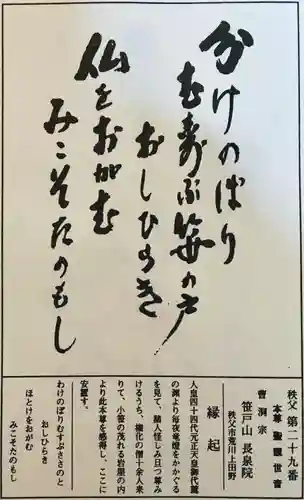 分けのぼり
む寿ぶ笹の戸
おしひらき
仏をおがむ
みこそたのもし
秩父 第二十九番
本尊 聖観世音
曹洞宗
笹戸山 長泉院
秩父市荒川上田野
縁起
人皇四十四代元正天皇御代麓
の淵より毎夜竜燈をかかぐる
を見て、隣人怪しみ且つ尊み
けるうち、権化の僧十余人来
りて、小笹の茂れる岩屋の内
より此本尊を感得し、ここに
安置す。
わけのぼりむすぶささのと
おしひらき
ほとけをおがむ
みこそたのもし